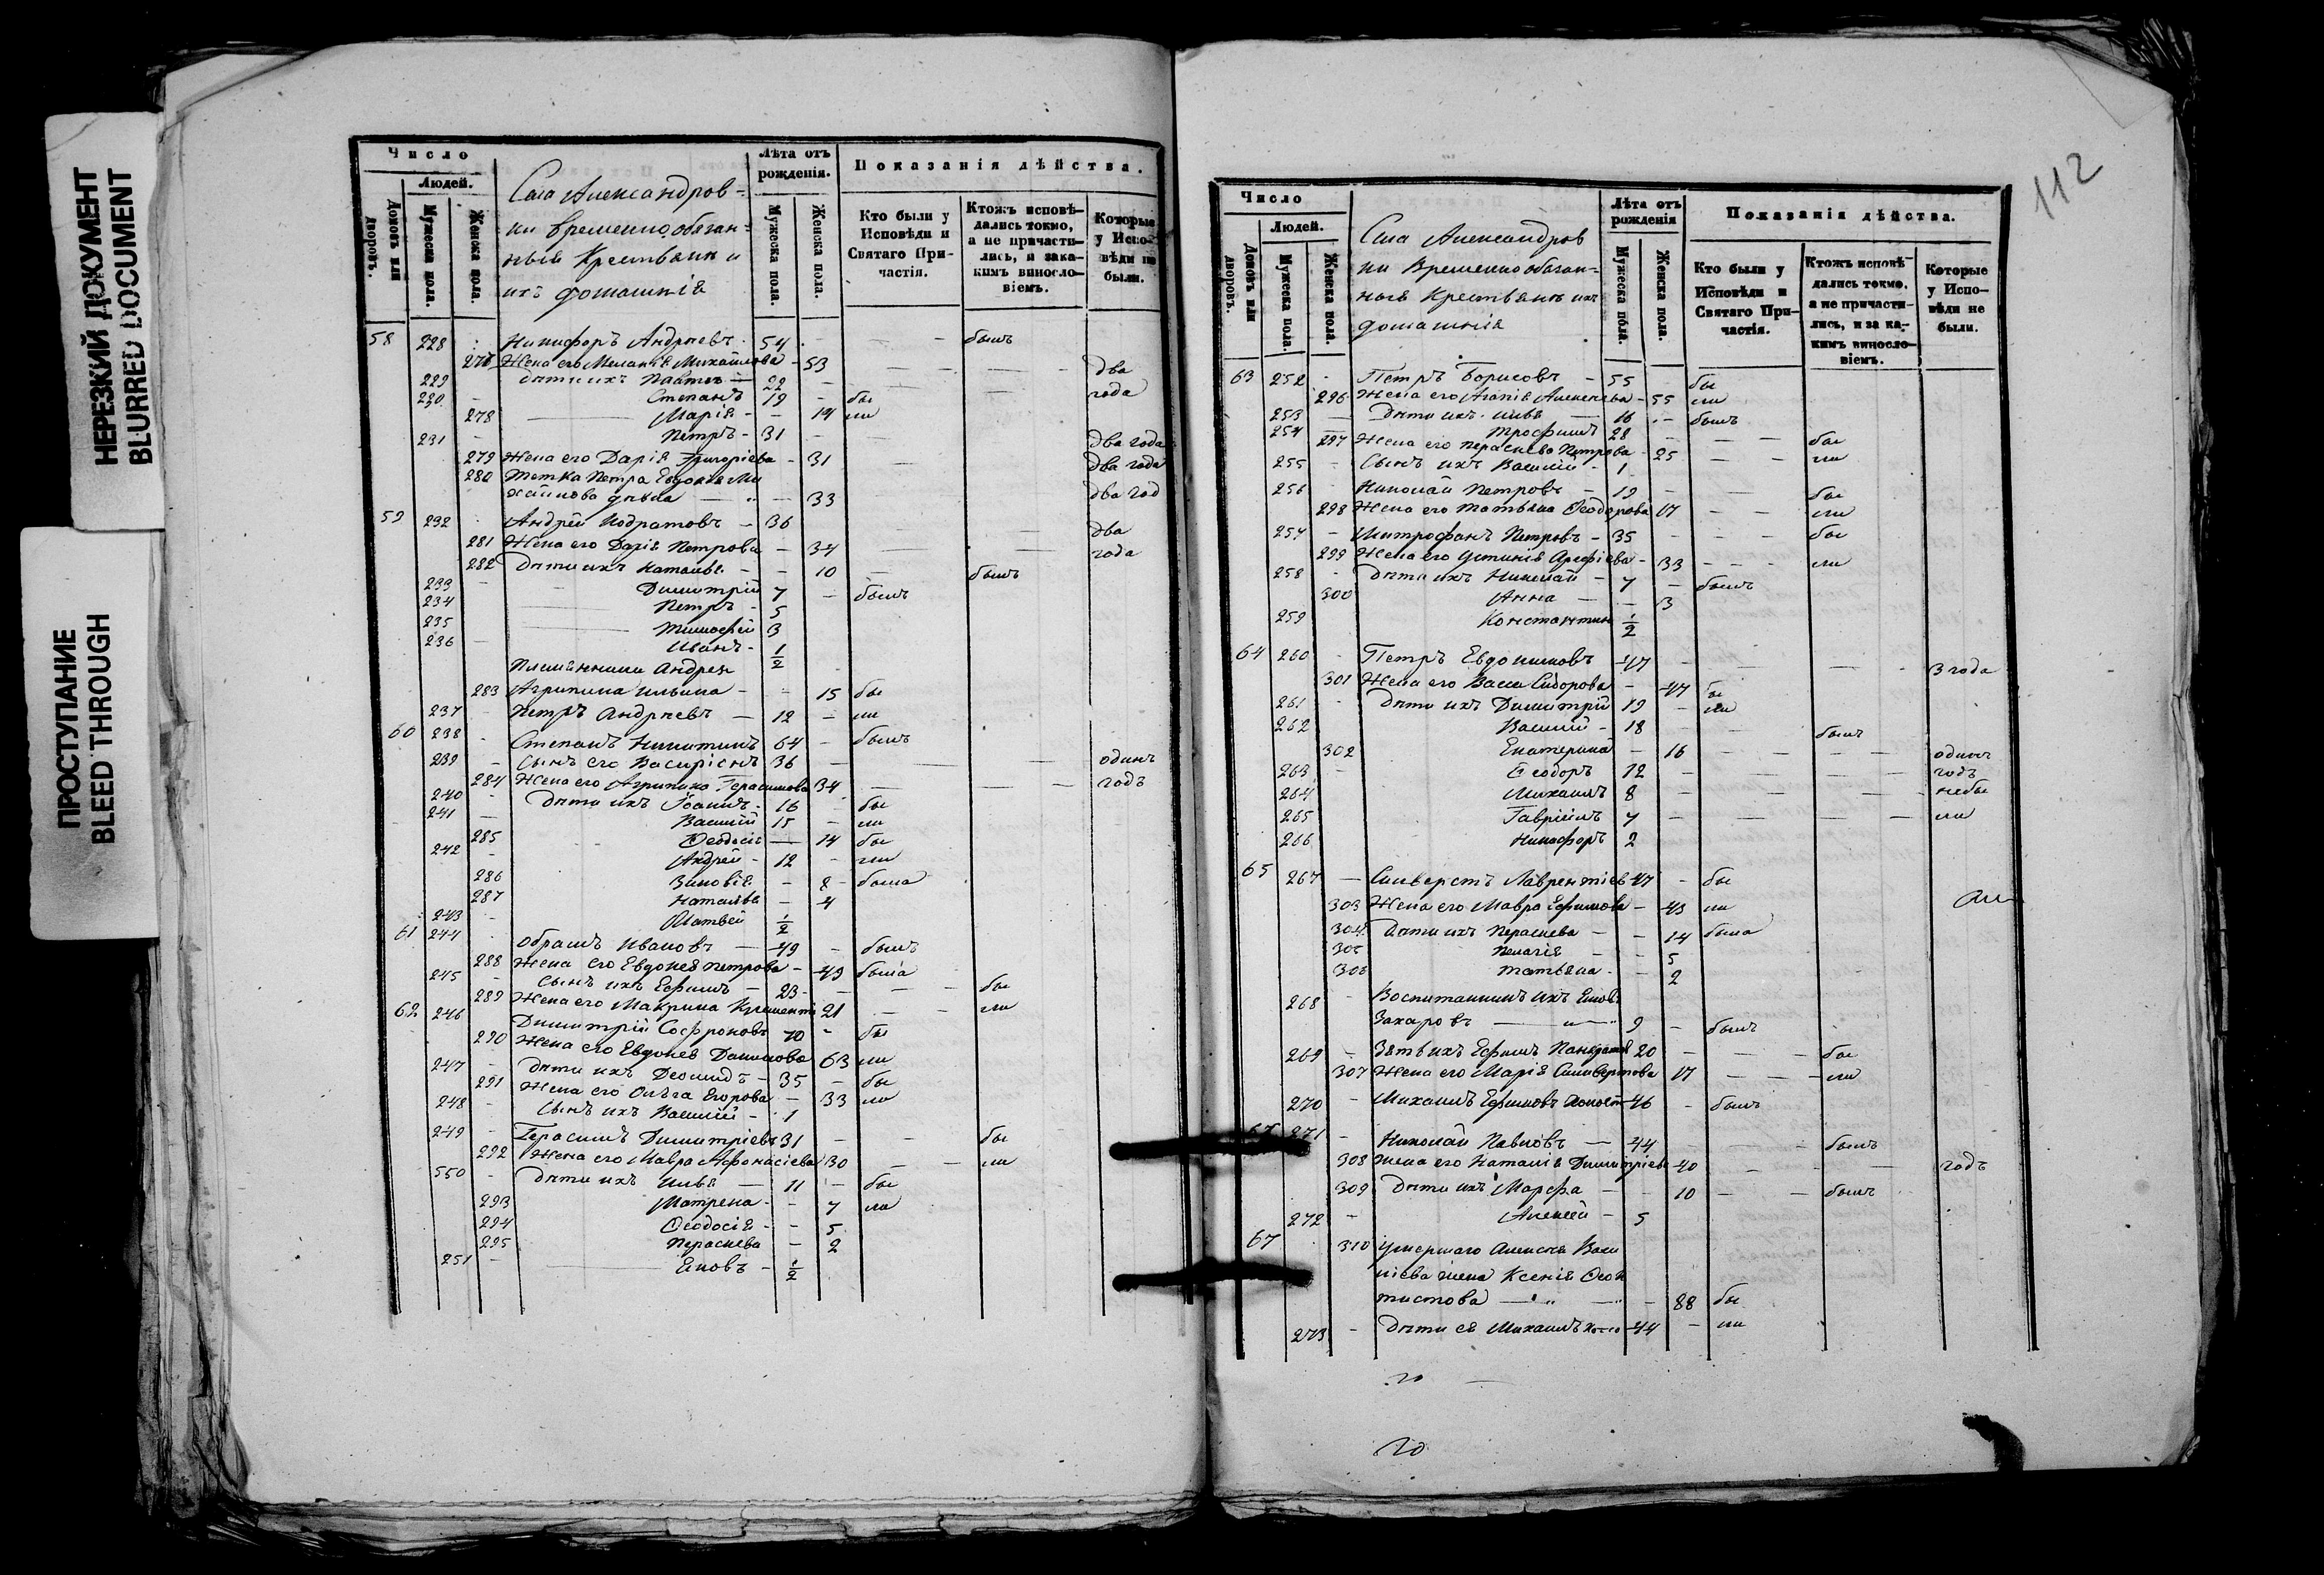 НЕРЕЗКИЙ ДОКУМЕНТ
BLURRED DOCUMENT
ПРОСТУПАНИЕ
BLEED THROUGH
Число
Людей.
Домовъ или дворовъ.
Мужеска пола.
Женска пола.
Села Александров-
ки временно обязан-
ныя Крестьяни и
ихъ домашнія
Лѣта отъ рожденія.
Мужеска пола.
Женска пола.
Показанія дѣйства.
Кто были у Исповѣди и Святаго При-частія.
Ктожъ исповѣ-дались токмо, а не причасти-лись, и зака-кимъ винослo-віемъ.
Которые у Испо-вѣди не были.
58 228 Никифоръ Андреевъ 54 былъ
Жена его Меланія Михайлова - 53 два
229 дѣти ихъ Павтелъ 22 года
230 Степанъ 19 бы
278 Марія - 14 ли
231 Петръ - 31 два года
279 Жена его Дарія Григоріева - 31 два года
280 Тетка Петра Евдокія Ми
хайлова дѣвка 33 два год
59 232 Андрей Кодратовъ - 36 два
281 Жена его Дарія Петрова - 34 года
282 Дѣти ихъ Наталья - 10 былъ
233 Димитрій 7 былъ
234 Петръ - 5
235 Тимофей 3
236 Иванъ - 1/2
Племянники Андрея
283 Агрипина Ильина - 15 бы
237 Петръ Андреевъ - 12 ли
60 238 Степанъ Никитинъ 64 былъ
239 Сынъ его Василіенъ 36 одинъ
284 Жена его Агрипина Герасимова 34 годъ
240 Дѣти ихъ Іоаннъ - 16 бы
241 Василій 15 ли
285 Ѳеодосія 14 бы
242 Андрей - 12 ли
286 Зиновія - 8 была
287 Наталья - 4
243 Матвей 1/2
61 244 Обрамъ Ивановъ - 49 былъ
288 Жена его Евдокія Петрова - 49 была
245 Сынъ ихъ Ефимъ - 23 бы
289 Жена его Макрина Климентi 21 ли
62 246 Димитрій Софроновъ 70 бы
290 Жена его Евдокія Данилова 63 ли
247 Дѣти ихъ Деомидъ - 35 бы
291 Жена его Ольга Егорова - 33 ли
248 Сынъ ихъ Василій - 1
249 Герасимъ Димитріевъ 31 бы
292 Жена его Мавра Афонасіева 30 ли
550 Дѣти ихъ Илья 11 бы
293 Матрена - 7 ли
294 Ѳеодосія - 5
295 Параскева - 2
251 Яковъ - 1/2
112
Число
Людей.
Домовъ или дворовъ.
Мужеска пола.
Женска пола.
Села Александров
ки Временно обязан-
ныя Крестьянъ ихъ
домашнія
Лѣта отъ рожденія
Мужеска пола.
Женска пола.
Показанія дѣйства.
Кто были у Исповѣди и Святаго При-частія.
Ктожъ исповѣ-дались токмо, а не причасти-лись, и за ка-кимъ винослo-віемъ.
Которые у Испо-вѣди не были.
63 252 Петръ Борисовъ - 55 бы
296 Жена его Агапія Алексеева - 55 ли
253 Дѣти ихъ Илья 16 былъ
254 Трофимъ 28 бы
297 Жена его Параскева Петрова - 25 ли
255 Сынъ ихъ Василій - 1
256 Николай Петровъ - 19 бы
298 Жена его Татьяна Ѳеодорова 17 ли
257 Митрофанъ Петровъ - 35 бы
299 Жена его Устинія Арефіева - 33 ли
258 Дѣти ихъ Николай - 7 былъ
300 Анна - 3
259 Константин 1/2
64 260 Петръ Евдокимовъ - 47 3 года
301 Жена его Васса Сидорова - 47 бы
261 Дѣти ихъ Димитрій 19 ли
262 Василій - 18 былъ
302 Екатерина - 16 одинъ
263 Ѳеодоръ 12 годъ
264 Михаилъ 8 небы
265 Гавріилъ 7 ли
266 Никифоръ 2
65 267 Сильверстъ Лаврентіев 47 бы
303 Жена его Мавра Ефимова - 43 ли
304 Дѣти ихъ Параскева - 14 была
305 Пелагія - 5
306 Татьяна - 2
268 Воспитанникъ ихъ Яковъ
Захаровъ 9 былъ
269 Зять ихъ Ефимъ Панкратов 20 бы
307 Жена его Марія Сильверстова 17 ли
270 Михаилъ Ефимовъ Холост 46 былъ
271 Николай Павловъ - 44 былъ
308 Жена его Наталія Димитріева 40 годъ
309 Дѣти ихъ Марфа - 10 былъ
272 Алексей - 5
67 310 Умершаго Алексея Васи
лiева жена Ксенія Ѳеок
тистова 88 бы
273 Дѣти ея Михаилъ 44 ли